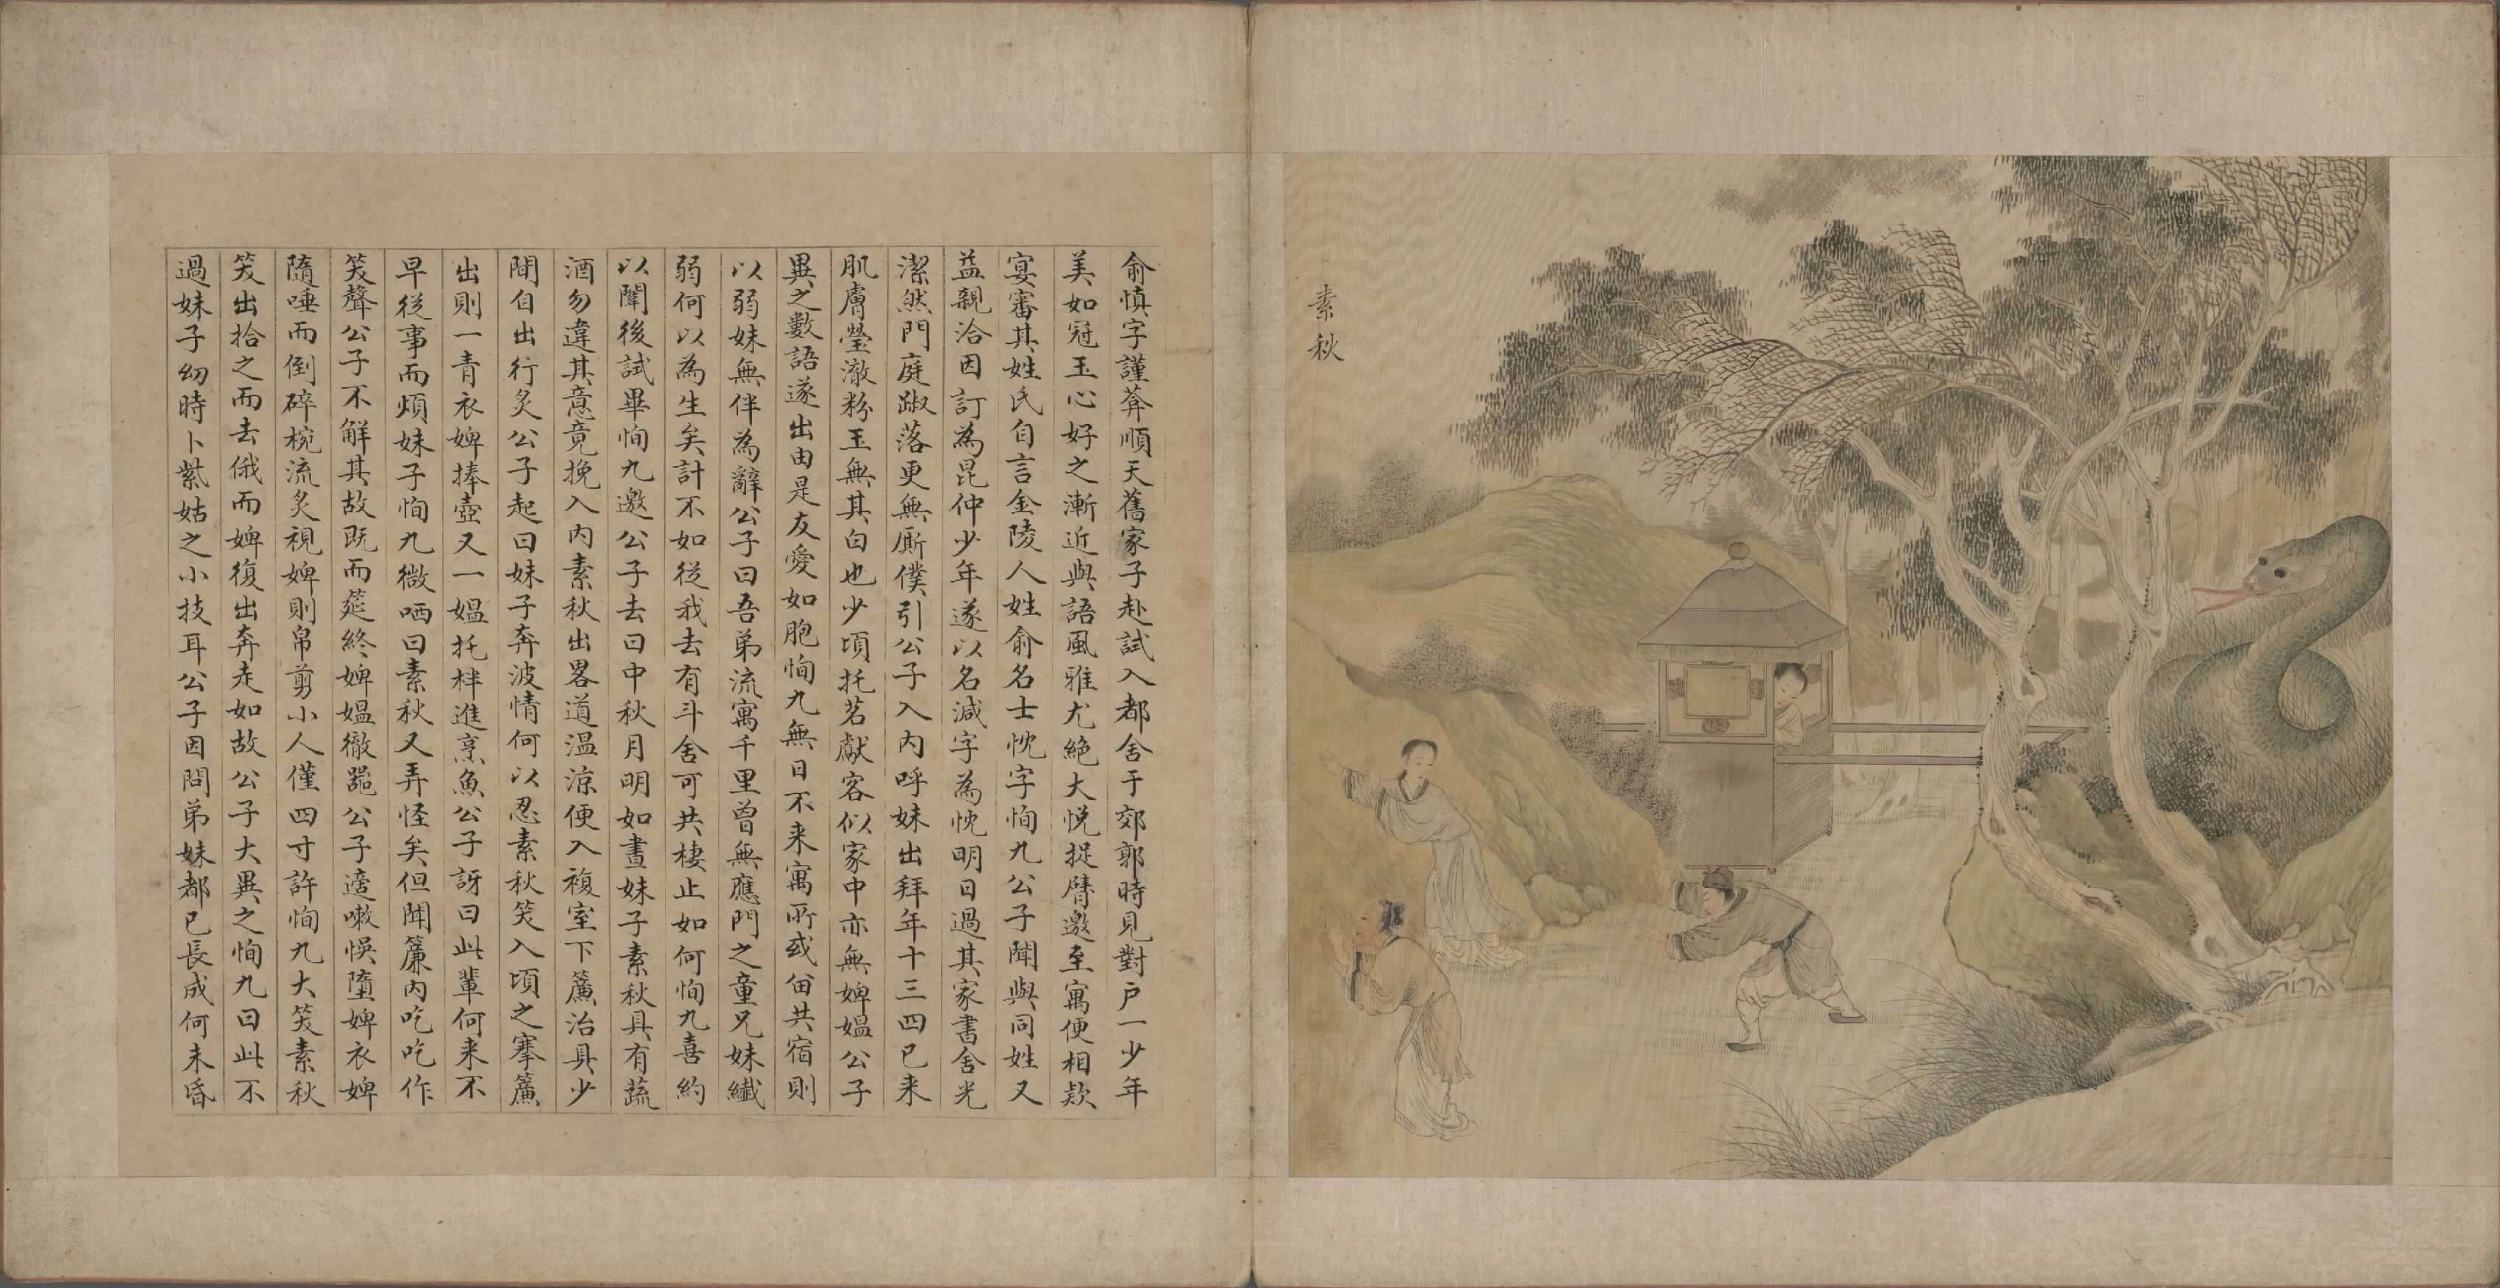 素秋
俞慎字謹菴順天舊家子赴試入都舍于郊郭時見對戶一少年
美如冠玉心好之漸近與語風雅尤絕大悅捉臂邀至寓便相款
宴審其姓氏自言金陵人姓俞名士忱字恂九公子聞與同姓又
益親洽因訂為昆仲少年遂以名減字為忱明日過其家書舍光
潔然門庭踧落更無厮僕引公子入內呼妹出拜年十三四已來
肌膚瑩澈粉玉無其白也少頃托茗獻客似家中亦無婢媼公子
異之數語遂出由是友愛如胞恂九無日不来寓所或畱共宿則
以弱妹無伴為辭公子曰吾弟流寓千里曾無應門之童兄妹纖
弱何以為生矣計不如從我去有斗舍可共棲止如何恂九喜約
以闈後試畢恂九邀公子去曰中秋月明如晝妹子素秋具有蔬
酒勿違其意竟挽入內素秋出畧道温涼便入複室下簾治具少
間自出行炙公子起曰妹子奔波情何以忍素秋笑入頃之搴簾
出則一青衣婢捧壺又一媼托柈進烹魚公子訝曰此輩何来不
早從事而煩妹子恂九微哂曰素秋又弄怪矣但聞簾內吃吃作
笑聲公子不解其故既而筵終婢媼徹器公子適嗽悞墮婢衣婢
隨唾而倒碎椀流炙視婢則帛剪小人僅四寸許恂九大笑素秋
笑出拾之而去俄而婢復出奔走如故公子大異之恂九曰此不
過妹子幼時卜紫姑之小技耳公子因問弟妹都已長成何未昏